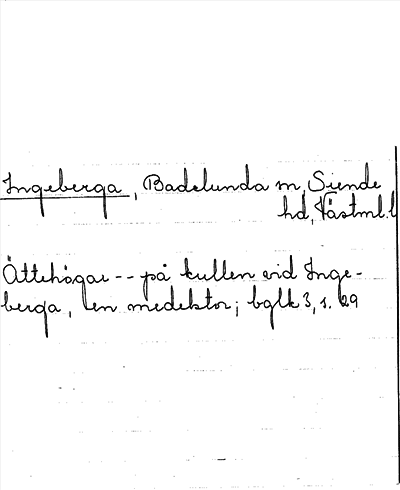 Ingeberga, Badelunda sn, Siende
hd, Västml. l
Ättehögar -- på kullen vid Inge-
berga, en medelstor; bglk 3, s. 29